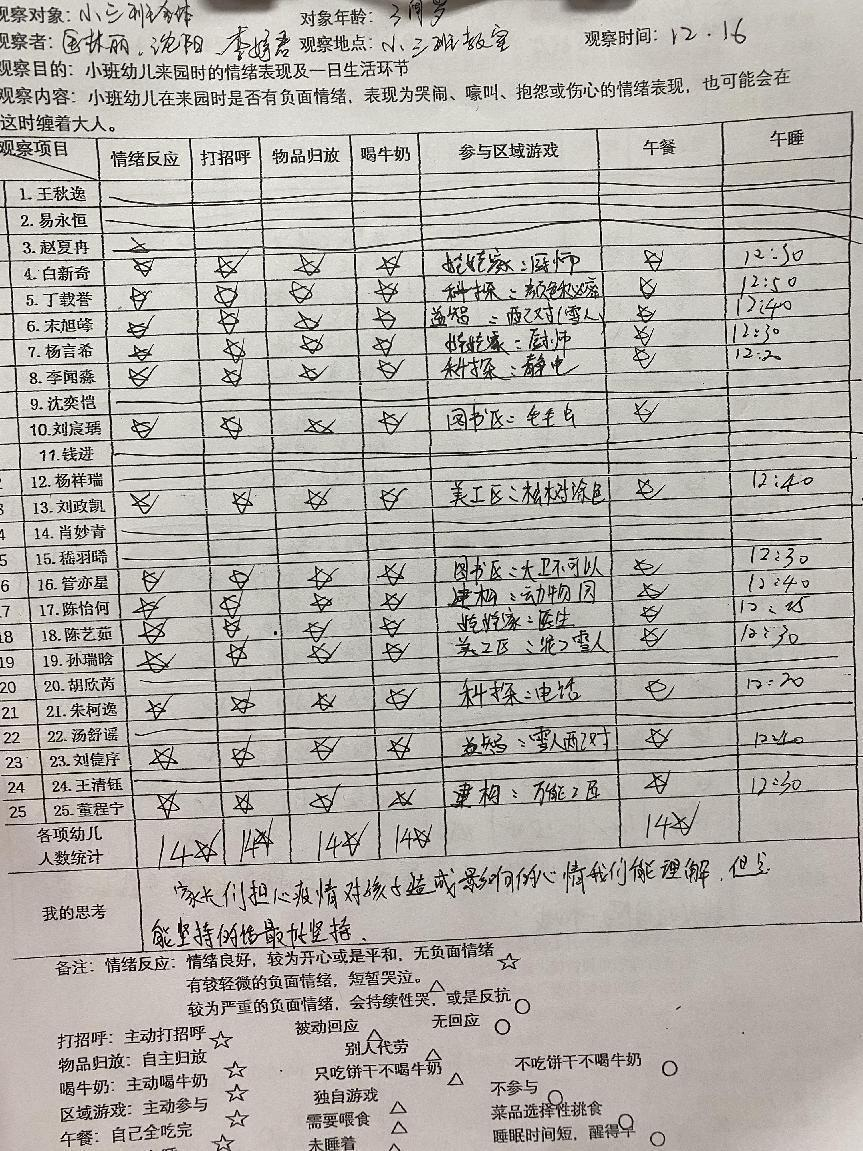 观察对象：小三班全体 对象年龄：3周岁
观察者： 沈阳、 观察地点：小三班教室 观察时间：12.16
观察目的：小班幼儿来园时的情绪表现及一日生活环节
观察内容：小班幼儿在来园时是否有负面情绪，表现为哭闹、嚎叫、抱怨或伤心的情绪表现，也可能会在
这时缠着大人。
观察项目 情绪反应 打招呼 物品归放 喝牛奶 参与区域游戏 午餐 午睡
1.王秋逸
2.易永恒
3.赵夏冉
4.白新奇 ☆ ☆ ☆ ☆ 娃娃家：厨师 ☆ 12:30
5.丁载誉 ☆ ☆ ☆ ☆ 科探：颜色秘密 ☆ 12:50
6.宋旭峰 ☆ ☆ ☆ ☆ 益智：两两对(雪人) ☆ 12:40
7.杨言希 ☆ ☆ ☆ ☆ 娃娃家：厨师 ☆ 12:30
8.李闻淼 ☆ ☆ ☆ ☆ 科探：静电 ☆ 12:20
9.沈奕恺
10.刘宸瑀 ☆ ☆ ☆ ☆ 图书区：毛毛虫 ☆
11.钱进
12.杨祥瑞
13.刘政凯 ☆ ☆ ☆ ☆ 美工区：松树涂色 ☆ 12:40
14.肖妙青
15.嵇羽晞
16 16.管亦星 ☆ ☆ ☆ ☆ 图书区：大卫不可以 ☆ 12:30
17 17.陈怡何 ☆ ☆ ☆ ☆ 建构：动物园 ☆ 12:40
18 18.陈艺茹 ☆ ☆ ☆ ☆ 娃娃家：医生 ☆ 12:25
19 19.孙瑞晗 ☆ ☆ ☆ ☆ 美工区：泥工雪人 ☆ 12:30
20 20.胡欣芮
21 21.朱柯逸 ☆ ☆ ☆ ☆ 科探：电话 ☆ 12:20
22 22.汤舒谣
23 23.刘信序 ☆ ☆ ☆ ☆ 益智：雪人两两对 ☆ 12:40
24 24.王清钰
25 25.董程宁 ☆ ☆ ☆ ☆ 建构：万能工匠 ☆ 12:30
各项幼儿
人数统计 14☆ 14☆ 14☆ 14☆ 14☆
我的思考 家长们担心疫情对孩子造成影响的心情我们能理解，但是
能坚持的话最好坚持。
备注：情绪反应：情绪良好，较为开心或是平和，无负面情绪☆
有较轻微的负面情绪，短暂哭泣。△
较为严重的负面情绪，会持续性哭，或是反抗○
打招呼：主动打招呼☆ 被动回应△ 无回应○
物品归放：自主归放☆ 别人代劳△
喝牛奶：主动喝牛奶☆ 只吃饼干不喝牛奶△ 不吃饼干不喝牛奶○
区域游戏：主动参与☆ 独自游戏△ 不参与○
午餐：自己全吃完☆ 需要喂食△ 菜品选择性挑食○
☆ 未睡着△ 睡眠时间短，醒得早○